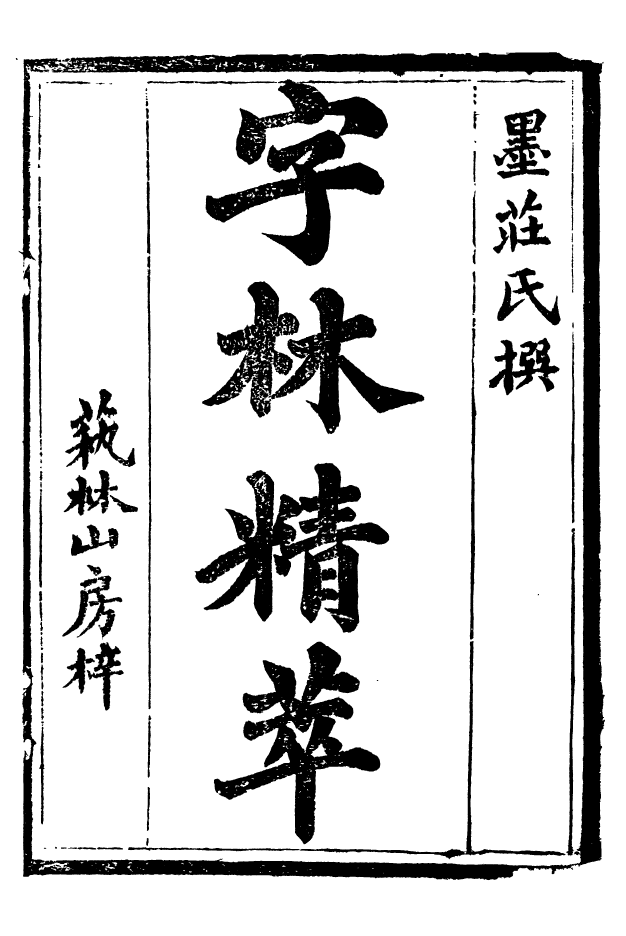 墨莊氏撰
字林精萃
蓺林山房梓